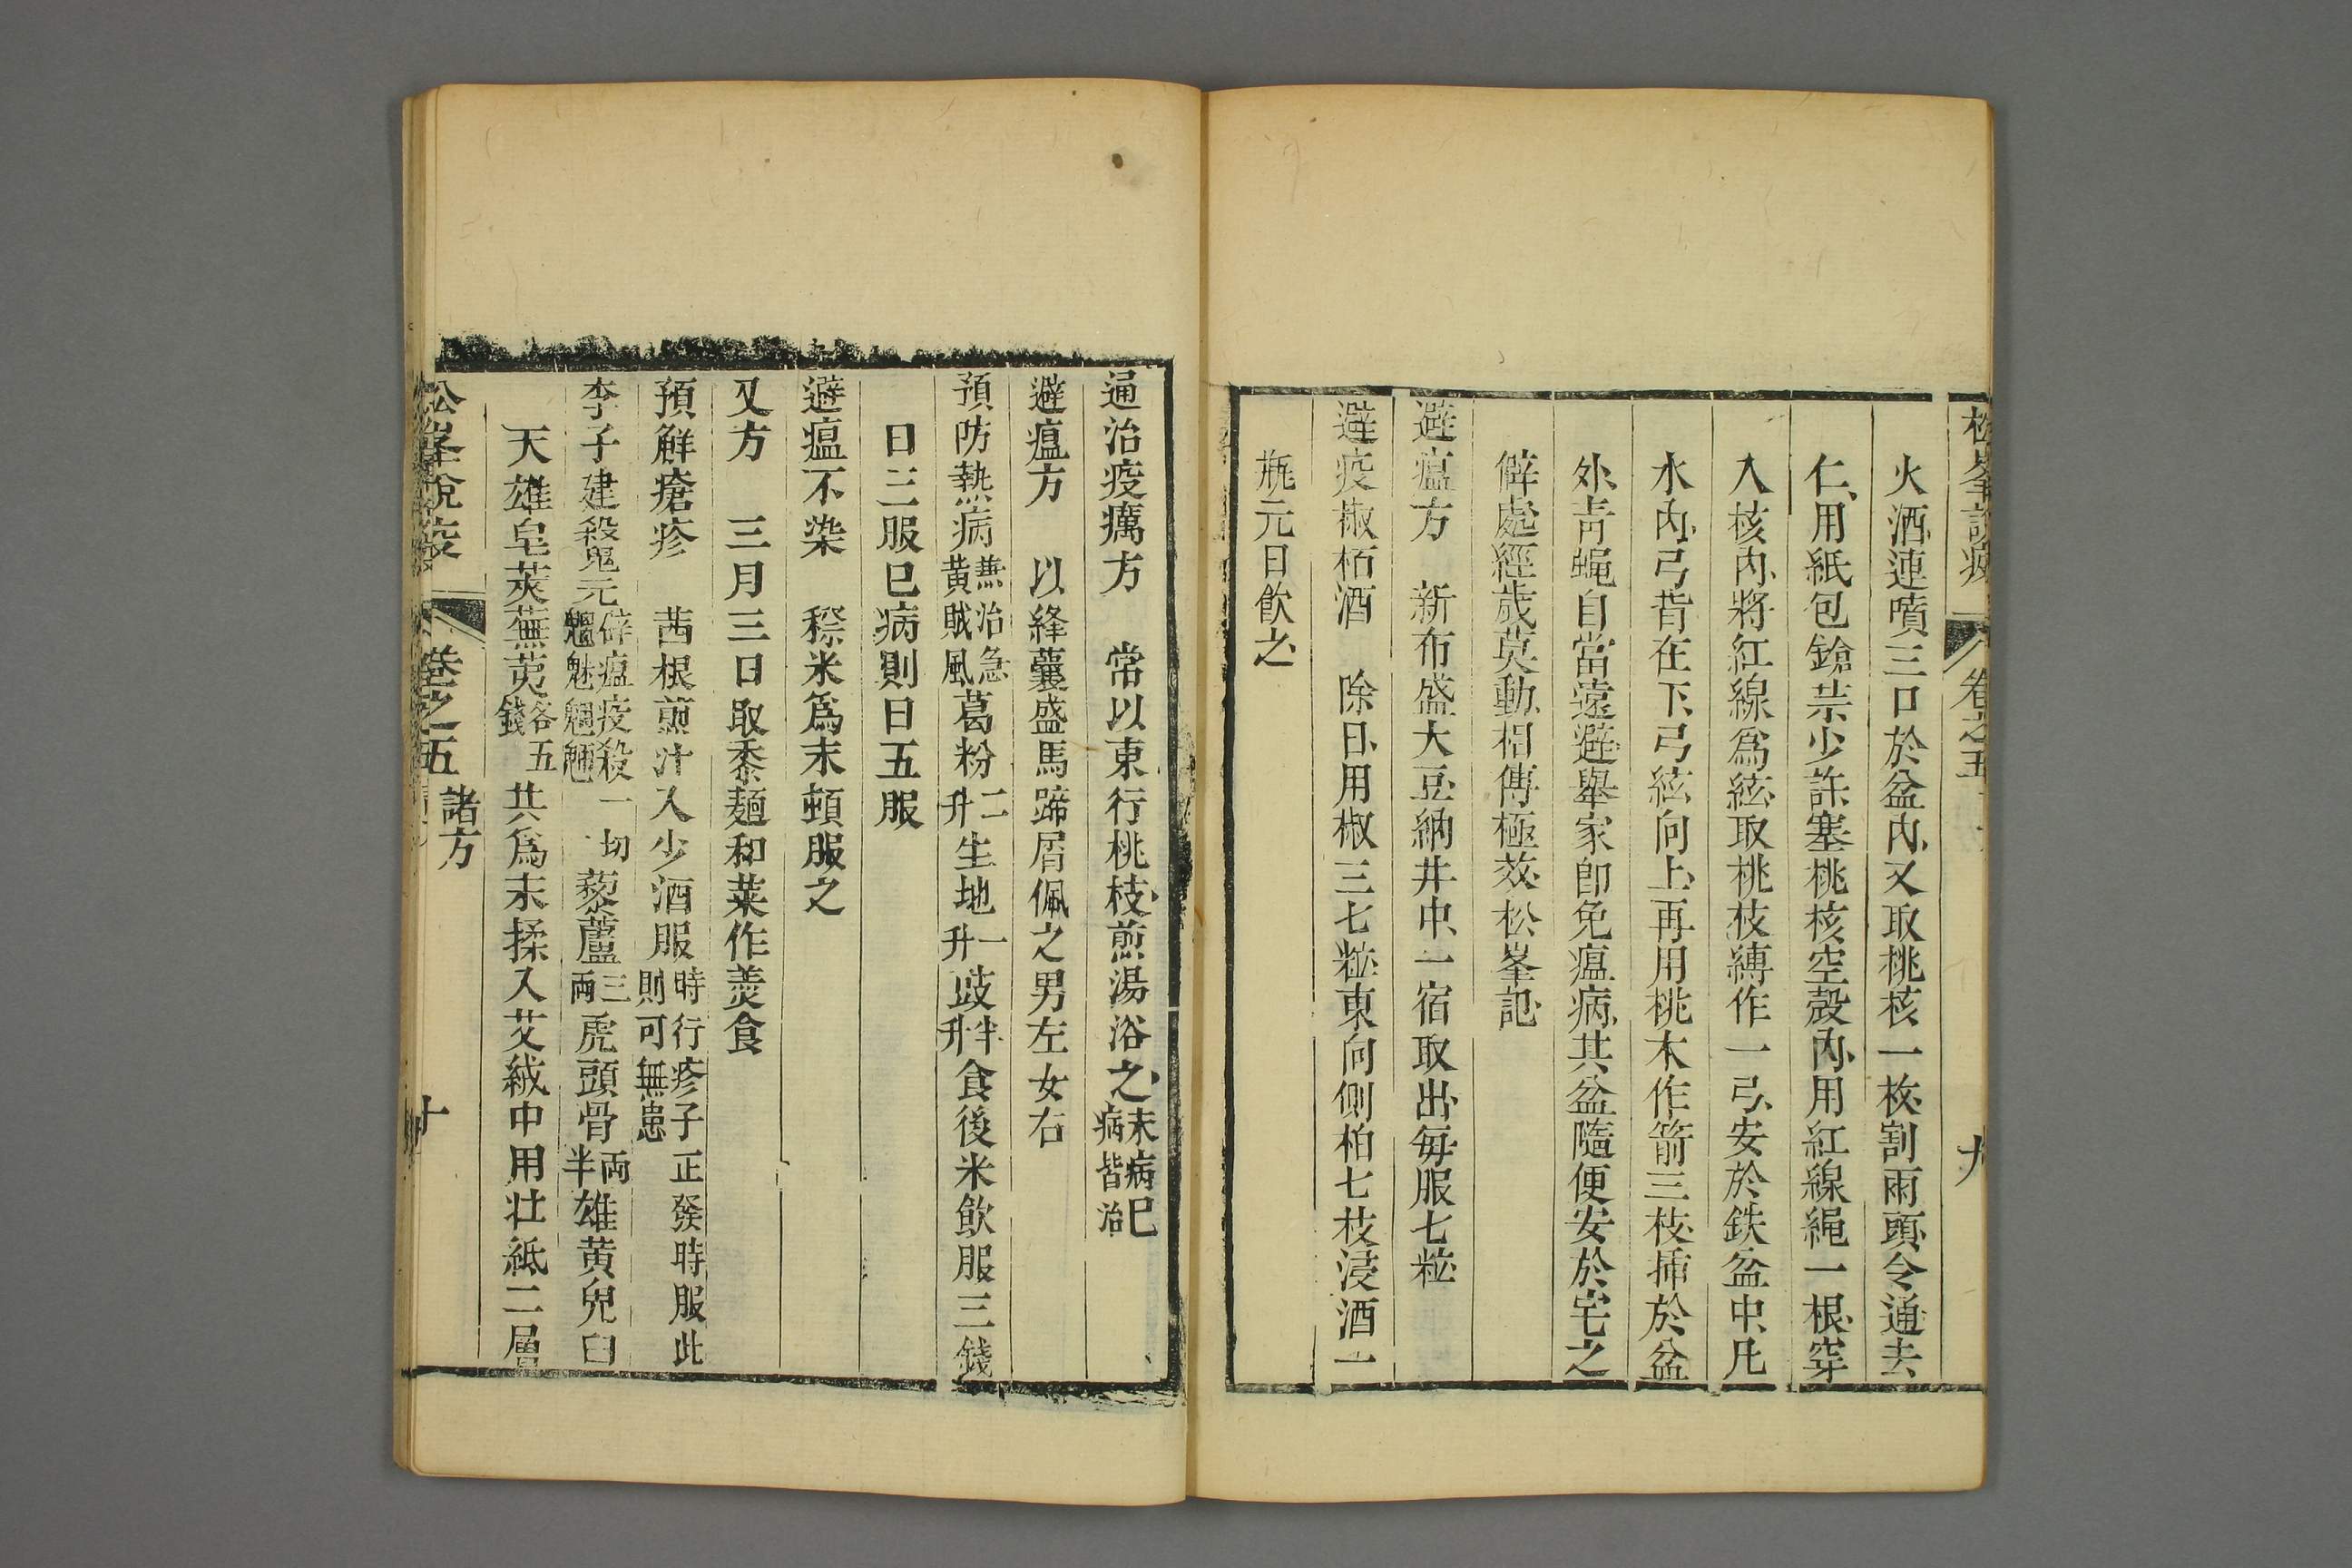 松峯說疫 卷之五 九
火酒連噴三口於盆內又取桃核一枚割兩頭令通去
仁用紙包鎗藥少許塞桃核空殼內用紅線繩一根穿
入核內將紅線爲絃取桃枝縛作一弓安於鉄盆中凡
水內弓背在下弓絃向上再用桃木作箭三枝揷於盆
外靑蝇自當遠避舉家卽免瘟病其盆隨便安於宅之
僻處經歲莫動相傳極效松峯記
避瘟方 新布盛大豆納井中一宿取出每服七粒
避疫椒栢酒 除日用椒三七粒東向側柏七枝浸酒一
瓶元日飮之
通治疫癘方 常以東行桃枝煎湯浴之未病巳病皆治
避瘟方 以絳囊盛馬蹄屑佩之男左女右
預防熱病兼治急黄賊風葛粉二升生地一升豉半升食後米飮服三錢
日三服巳病則日五服
避瘟不染 穄米爲末頓服之
又方 三月三日取黍麵和菜作羙食
預解瘡疹 茜根煎汁入少酒服時行疹子正發時服此則可無患
李子建殺鬼元僻瘟疫殺一切魍魅魍魎藜蘆三両虎頭骨両半雄黄皃臼
天雄皂莢蕪荑各五錢共爲末揉入艾絨中用壮紙二層
松峯說疫 卷之五 諸方 十